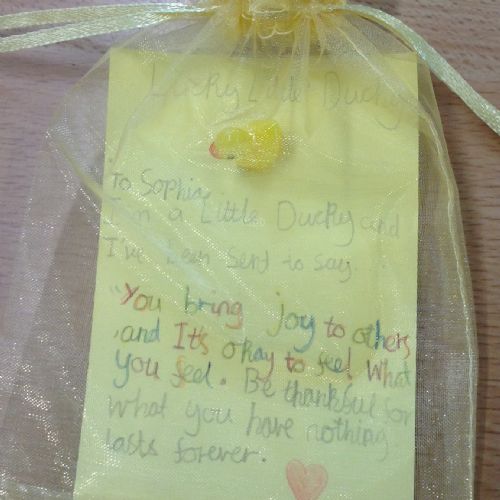 Lucky Little Ducky
To Sophia,
I'm a Little Ducky and
I've been sent to say...
"You bring joy to others
,and It's okay to feel What
you feel. Be thankful for
what you have nothing
lasts forever.